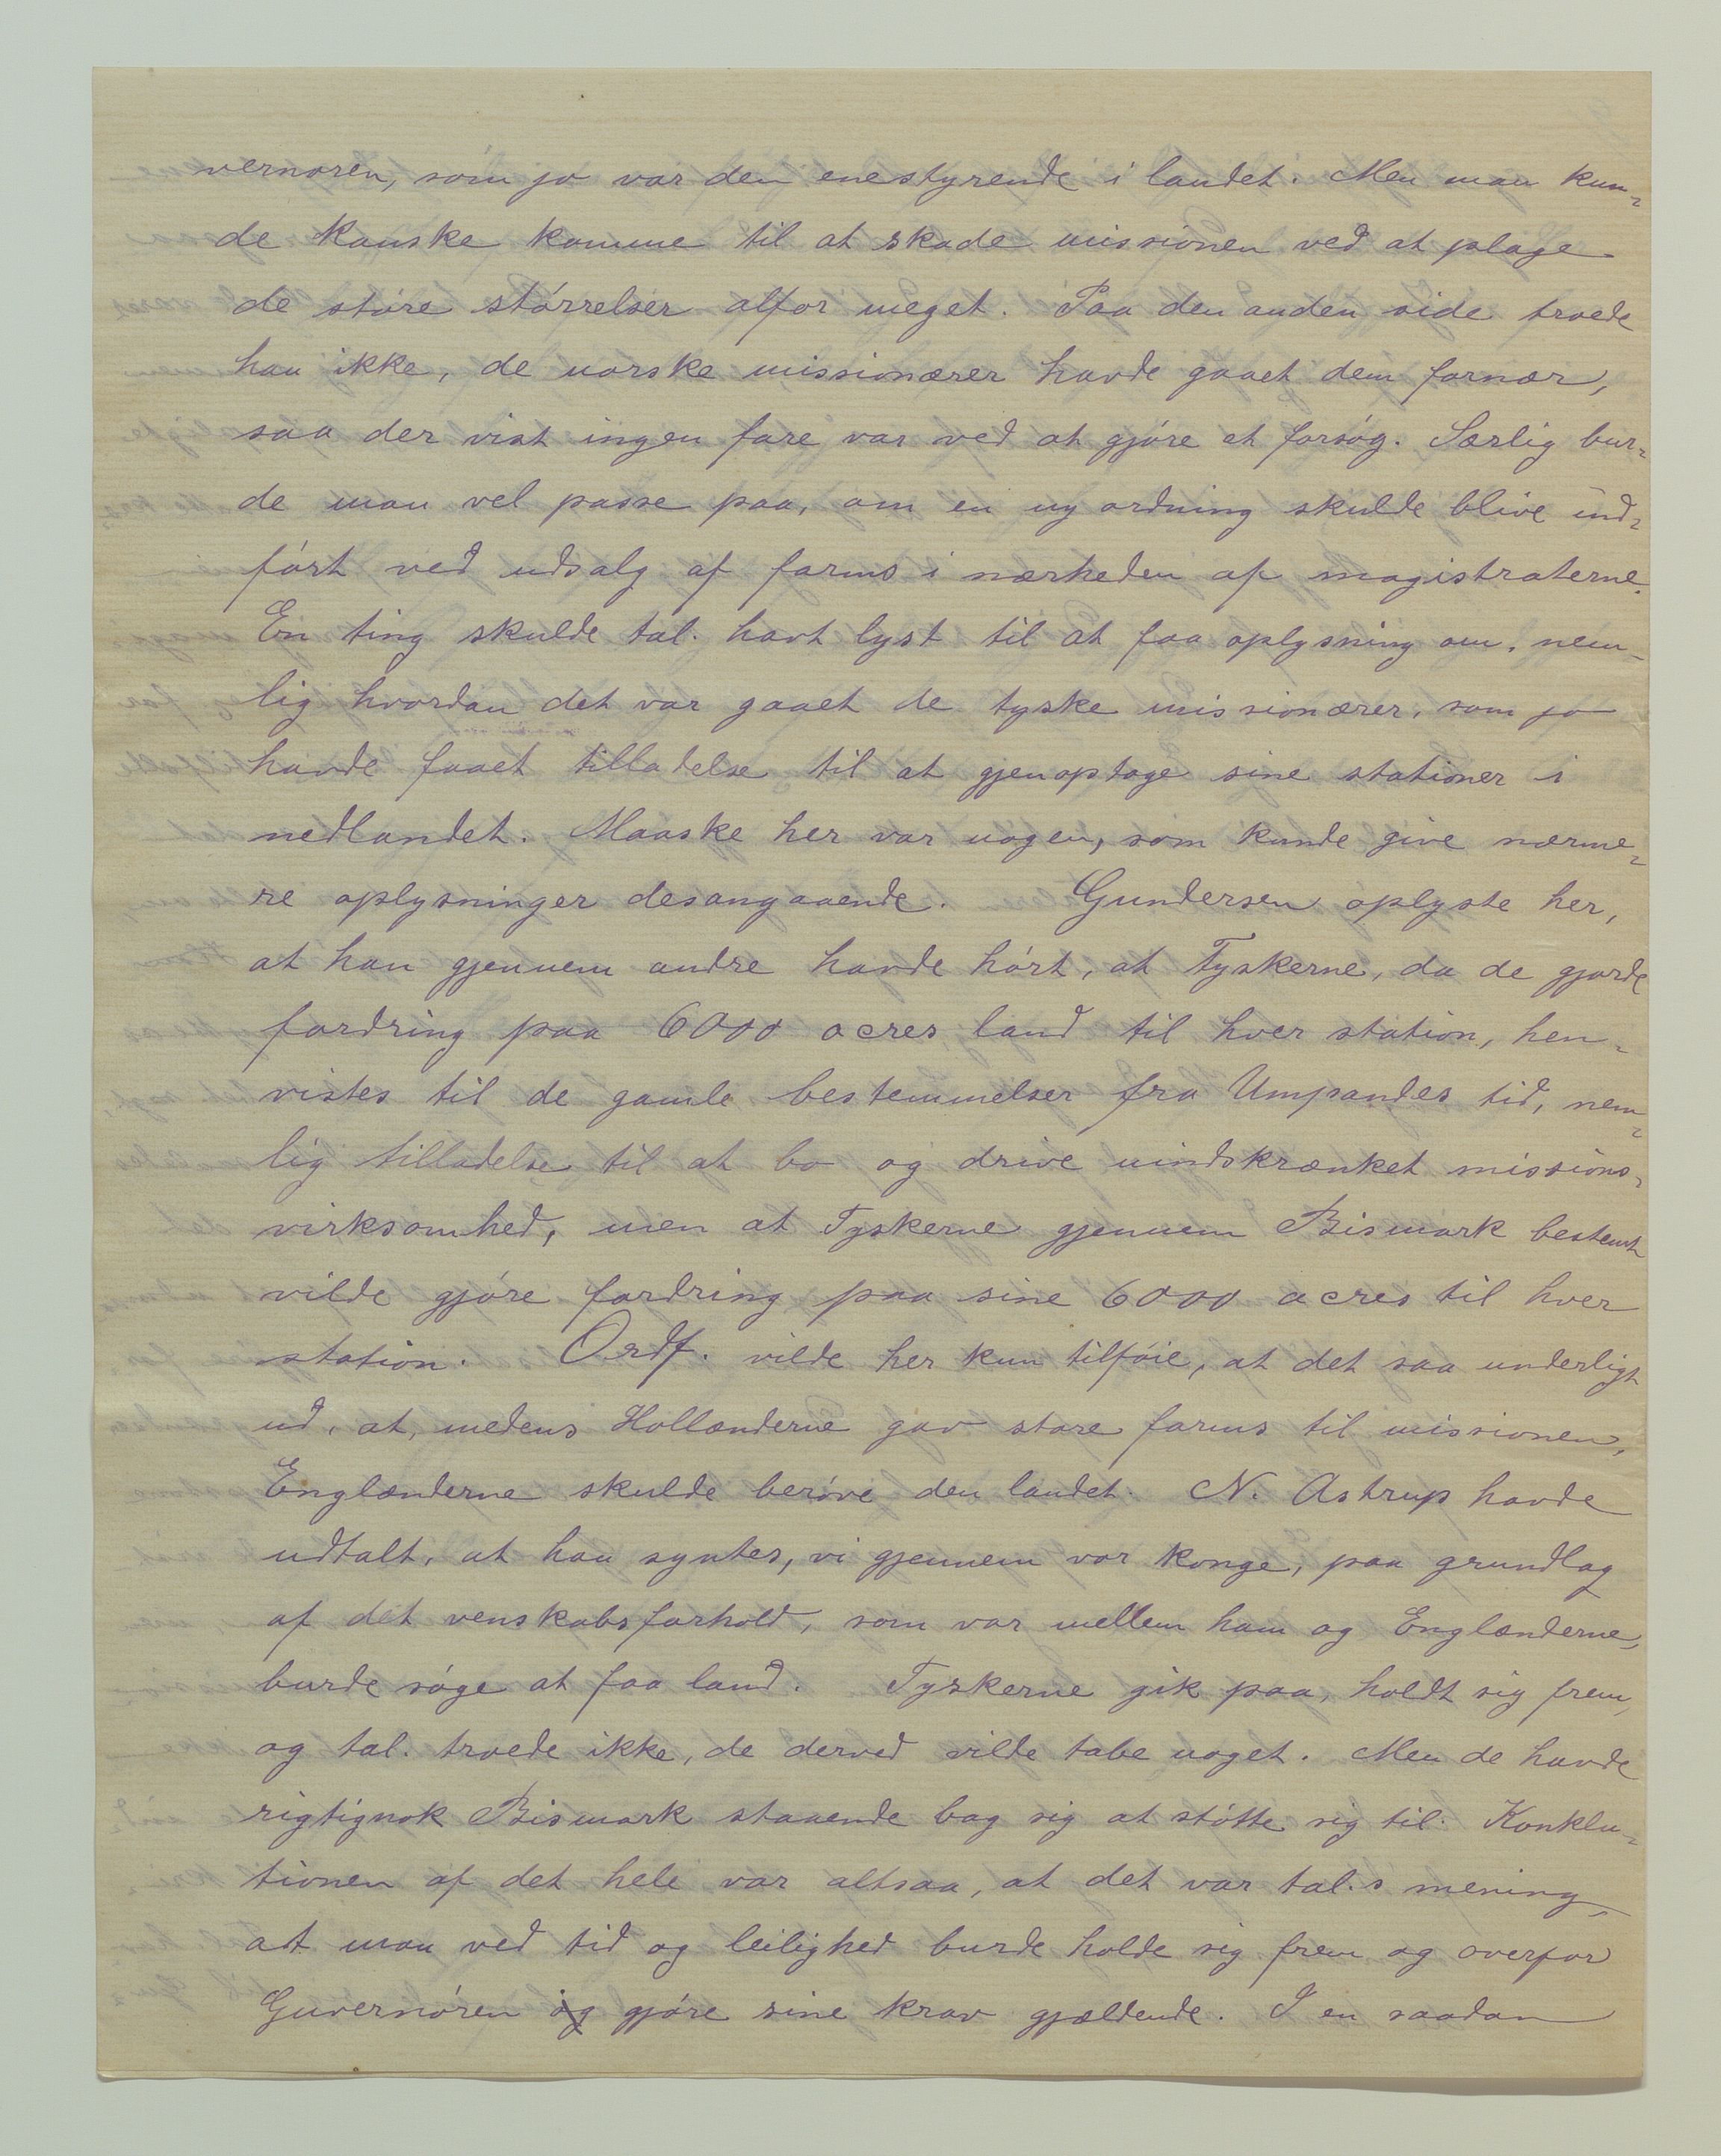 vernøren, som jo var den enestyrende i landet. Men man kun-
de kanske komme til at skade missionen ved at plage
de støre størrelser altfor meget. Paa den anden side troede
han ikke, de norske missionærer havde gaaet dem fornær,
saa der vist ingen fare var ved at gjøre et forsøg. Særlig bur-
de man vel passe paa, om en ny ordning skulde blive ind-
ført ved udsalg af farms i nærheden af magistraterne.
En ting skulde tal. havt lyst til at faa oplysning om, nem-
lig hvordan det var gaaet de tyske missionærer, som jo
havde faaet tilladelse til at gjenoptage sine stationer i
nedlandet. Maaske her var nogen, som kunde give nærme-
re oplysninger desangaaende. Gundersen oplyste her,
at han gjennem andre havde hørt, at Tyskerne, da de gjorde
fordring paa 6000 acres land til hver station, hen-
vistes til de gamle bestemmelser fra Umpandes tid, nem-
lig tilladelse til at bo og drive uindskrænket missions-
virksomhed, men at Tyskerne gjennem Bismark bestemt
vilde gjøre fordring paa sine 6000 acres til hver
station. Ordf. vilde her kun tilføie, at det saa underligt
ud, at, medens Hollænderne gav store farms til missionen,
Englænderne skulde berøve den landet. N. Astrup havde
udtalt, at han syntes, vi gjennem vor konge, paa grundlag
af det venskabsforhold, som var mellem ham og Englænderne,
burde søge at faa land. Tyskerne gik paa, holdt sig frem,
og tal. troede ikke, de derved vilde tabe noget. Men de havde
rigtignok Bismark staaende bag sig at støtte sig til. Konklu-
tionen af det hele var altsaa, at det var tal.s mening,
at man ved tid og leilighed burde holde sig frem og overfor
Guvernøren og gjøre sine krav gjældende. I en saadan